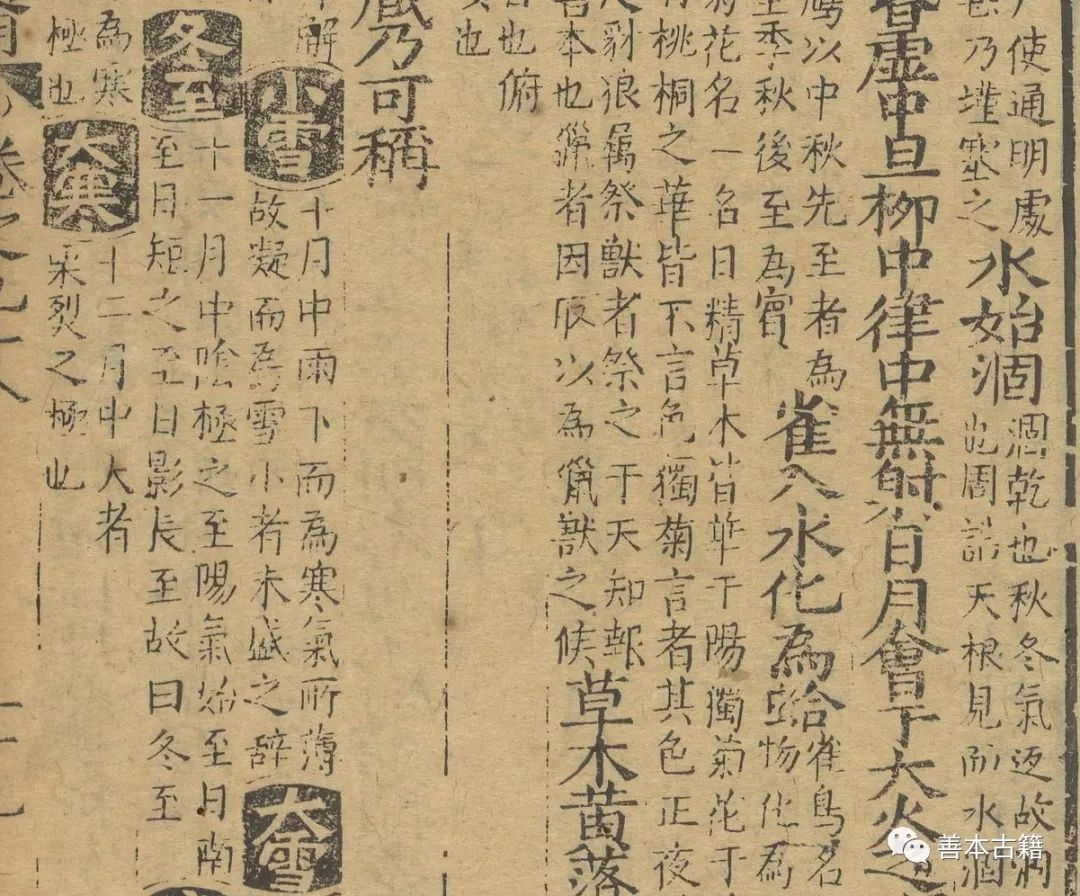 使通明處
乃墐塞之
水始涸
涸乾也秋冬氣返故涸
也周語天根見而水涸
昏虛中旦柳中律中無射日月會于大火之
鴈以中秋先至者為
至季秋後至為賓
雀入水化為蛤
雀鳥名
物化為
菊花名一名日精草木皆華于陽獨菊花于
桃桐之華皆不言色獨菊言者其色正夜
豺狼屬祭獸者祭之于天知報
本也獵者因取以為獵獸之候
草木黃落
也俯
也
乃可稱
解
小雪
十月中雨下而為寒氣所薄
故凝而為雪小者未盛之辞
大雪
冬至
十一月中陰極之至陽氣始至日南
至日短之至日影長至故曰冬至
為寒
極也
大寒
十二月中大者
栗烈之極也
卷之
善本古籍